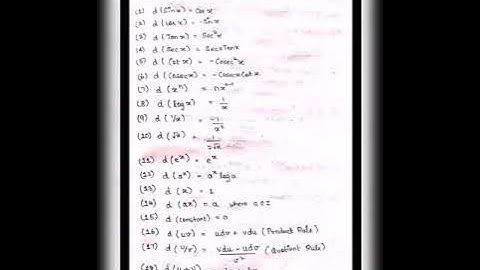 (1) d (Sin x) = Cos x
(2) d (cos x) = -Sin x
(3) d (Tan x) = Sec²x
(4) d (Sec x) = Secx Tanx
(5) d (Cot x) = -Cosec²x
(6) d (Cosec x) = -Cosecx Cot x
(7) d (xⁿ) = nxⁿ⁻¹
(8) d (log x) = 1/x
(9) d (1/x) = -1/x²
(10) d (√x) = 1/2√x
(11) d (eˣ) = eˣ
(12) d (aˣ) = aˣ log a
(13) d (x) = 1
(14) d (ax) = a where a ∈ I
(15) d (constant) = 0
(16) d (uv) = udv + vdu (Product Rule)
(17) d (u/v) = vdu - udv/v² (Quotient Rule)